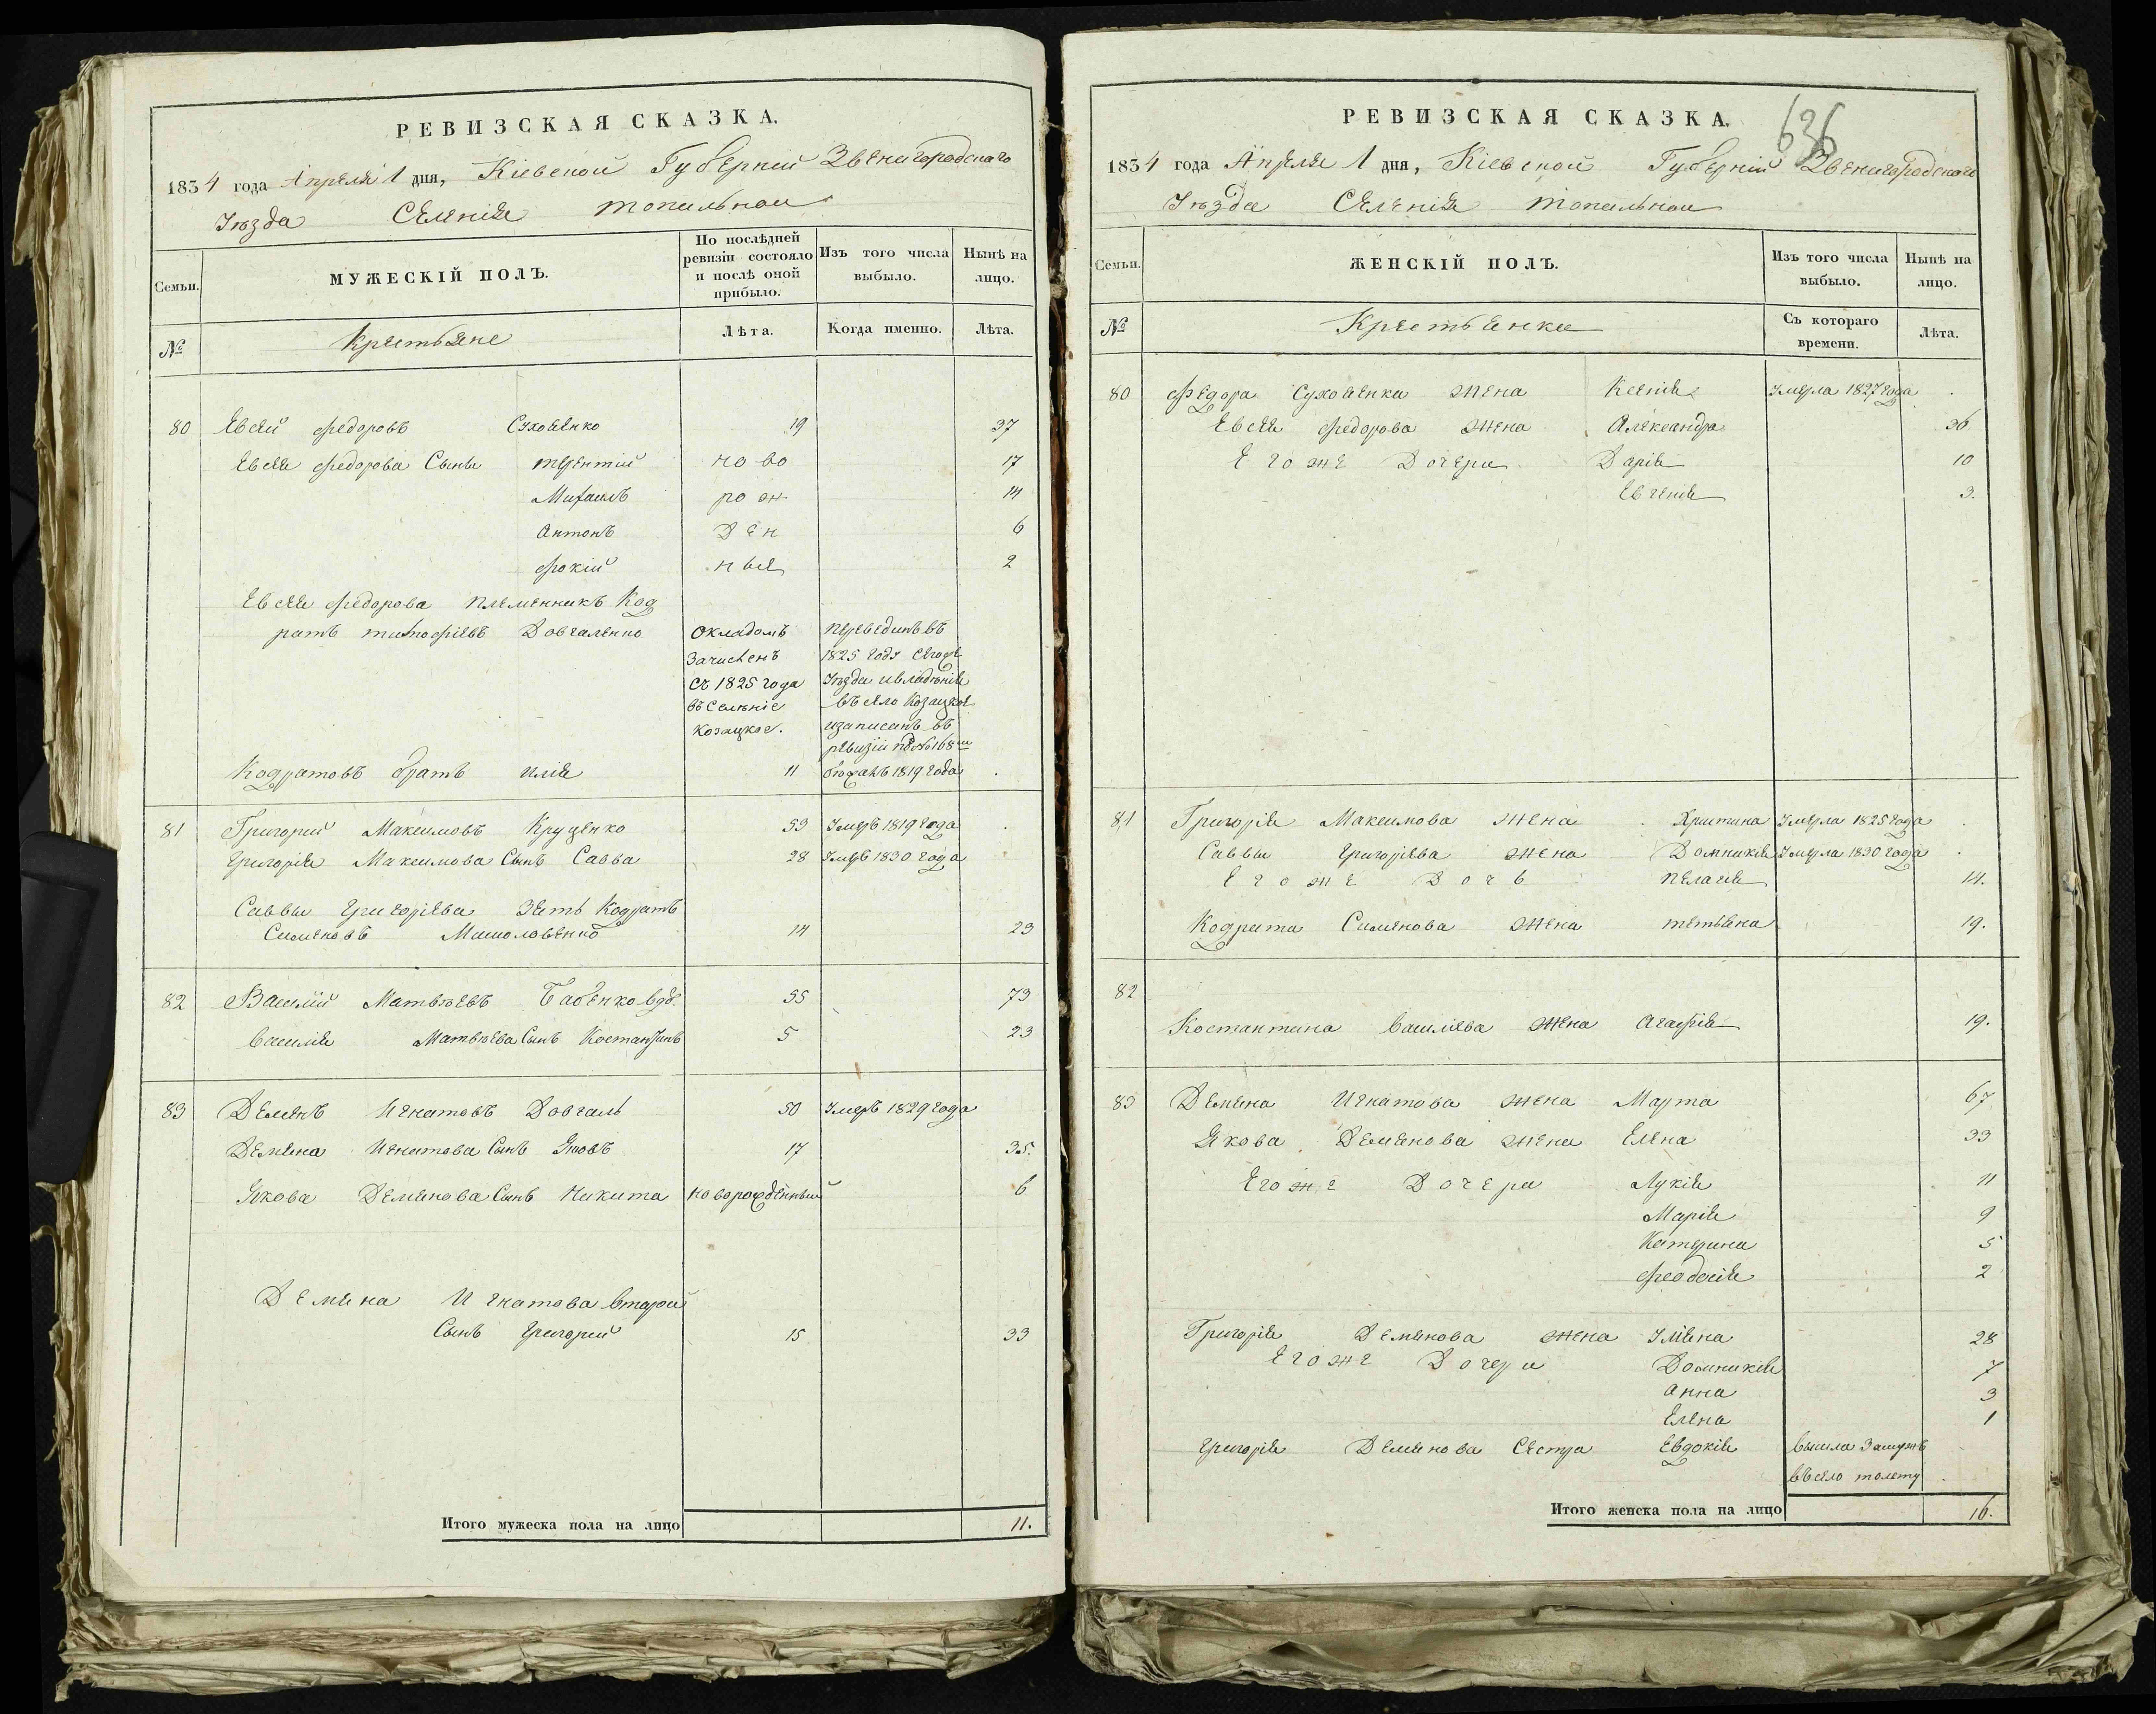 РЕВИЗСКАЯ СКАЗКА.
1834 года Апреля 1 дня, Кіевской Губерніи Звенигородскаго
Уѣзда Селенія Топильной
Семьи. МУЖЕСКІЙ ПОЛЪ. По послѣдней ревизіи состояло и послѣ оной прибыло. Изъ того числа выбыло. Нынѣ на лицо.
№ Крестьяне Лѣта. Когда именно. Лѣта.
80 Евсей Федоровъ Суховенко 19 37
Евсея Федорова Сыны Терентій ново 17
Михаилъ рож 14
Антонъ ден 6
Фокій ные 2
Евсея Федорова племенникъ Код
ратъ Тимофіевъ Довгаленко окладомъ перевединъ въ
зачисленъ 1825 году сегоже
съ 1825 года Уѣзда ивладѣнія
въ Селеніе въ село Козацкое
Козацкое. изаписанъ въ
ревизіи подъ № 168
Кодратовъ братъ Илія 11 1819 года
81 Григорий Максимовъ Круценко 53 Умеръ 1819 года
Григорія Максимова Сынъ Савва 28 Умеръ 1830 года
Саввы Григоріева Зять Кодратъ
Сименовъ 14 23
82 Василій Матвѣевъ Бабенко вдо. 55 73
Василія Матвѣева Сынъ Костантинъ 5 23
83 Демянъ Игнатовъ Довгаль 50 Умеръ 1829 года
Демяна Игнатова Сынъ Яковъ 17 35.
Якова Демянова Сынъ Никита новорожденный 6
Демяна Игнатова второй
Сынъ Григорий 15 33
Итого мужеска пола на лицо 11.
636
РЕВИЗСКАЯ СКАЗКА.
1834 года Апреля 1 дня, Кіевской Губерніи Звенигородского
Уѣзда Селенія Топильной
Семьи. ЖЕНСКІЙ ПОЛЪ. Изъ того числа выбыло. Нынѣ на лицо.
№ Крестьянки Съ котораго времени. Лѣта.
80 Федора Суховенка жена Ксенія Умерла 1827 года
Евсея Федорова жена Александра 36
Егоже Дочери Дарія 10
Евгенія 3.
81 Григорія Максимова жена Христина Умерла 1825 года
Саввы Григоріева жена Домникія Умерла 1830 года
Егоже Дочь Пелагія 14.
Кодрата Сименова жена Тетьяна 19.
82
Костантина Василіева жена Агафія 19.
83 Демяна Игнатова жена Марта 67
Якова Демянова жена Елена 33
Егоже Дочери Лукія 11
Марія 9
Катерина 5
Феодосія 2
Григорія Демянова жена Уліяна 28
Егоже Дочери Домникія 7
Анна 3
Елена 1
Григорія Демянова Сестра Евдокія вышла Замужъ
въ село
Итого женска пола на лицо 16.